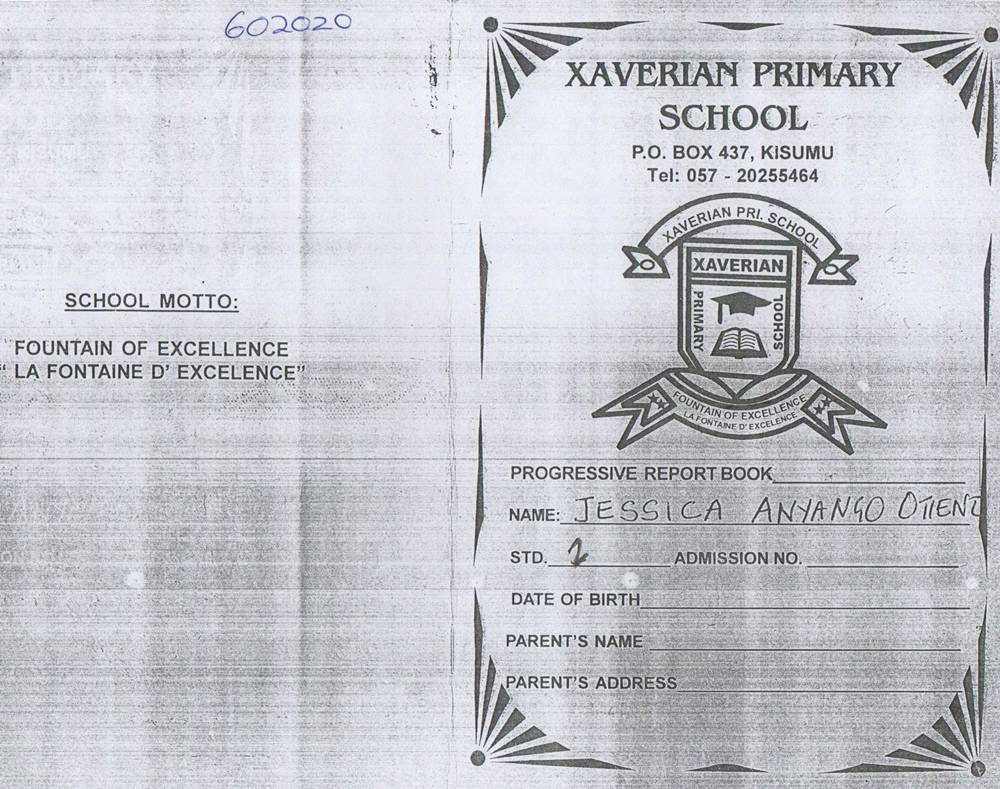 602020
SCHOOL MOTTO:
FOUNTAIN OF EXCELLENCE
“ LA FONTAINE D’ EXCELENCE”
XAVERIAN PRIMARY
SCHOOL
P.O. BOX 437, KISUMU
Tel: 057 - 20255464
XAVERIAN PRI. SCHOOL
XAVERIAN
PRIMARY
SCHOOL
FOUNTAIN OF EXCELLENCE
LA FONTAINE D' EXCELENCE
PROGRESSIVE REPORT BOOK
NAME: JESSICA ANYANGO OTIENO
STD. 2 ADMISSION NO.
DATE OF BIRTH
PARENT'S NAME
PARENT'S ADDRESS